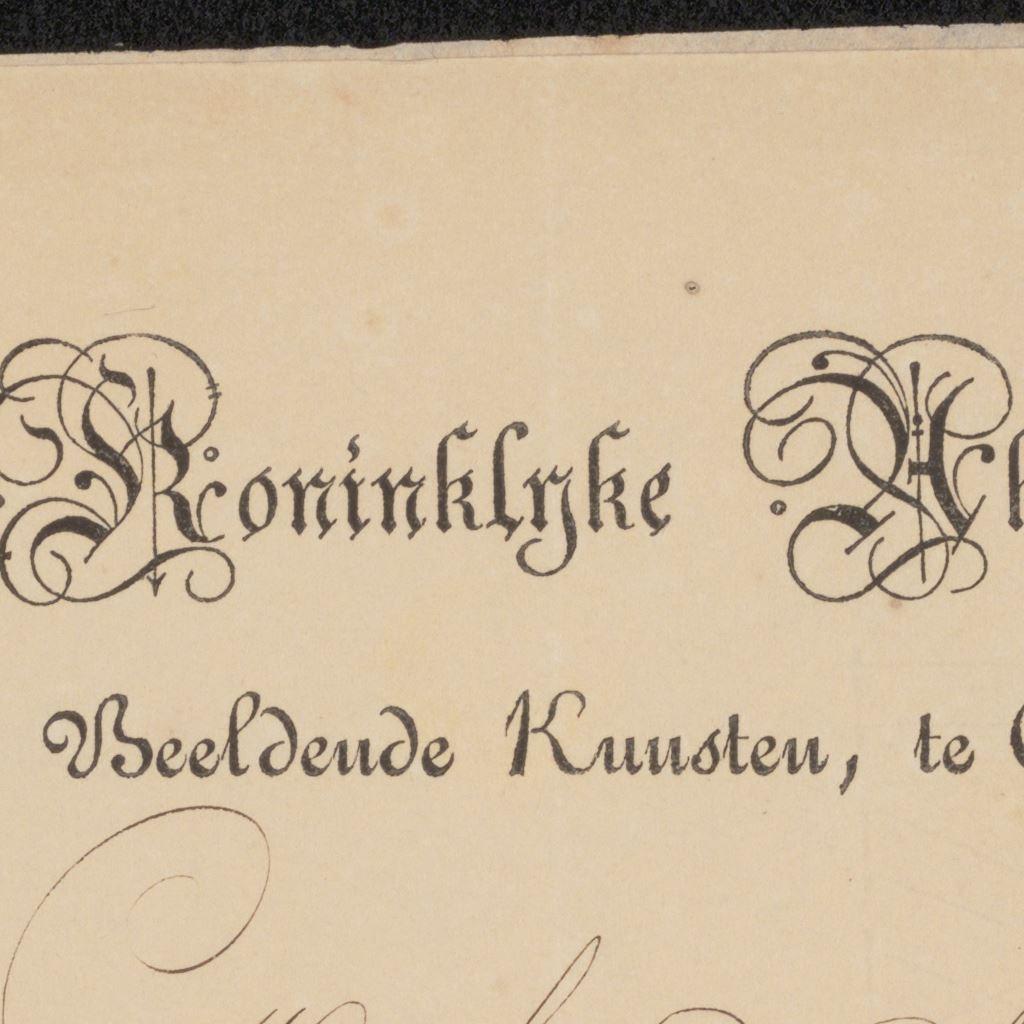 Koninklyke Ak
Beeldende Kunsten, te